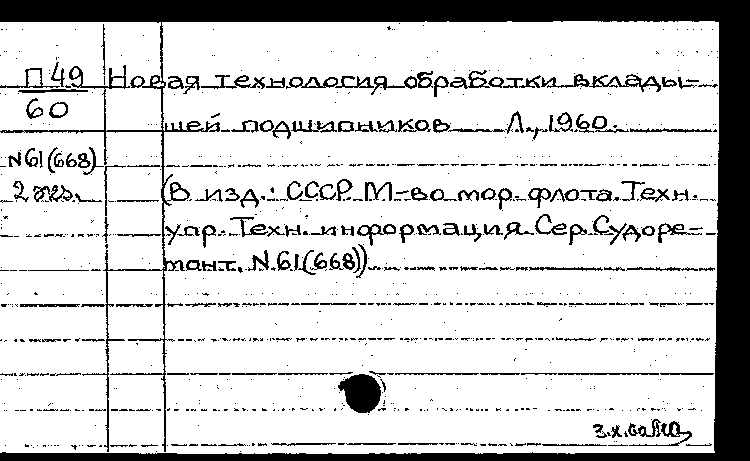 П49 Новая технология обработки вклады-
60
шей подшипников Л., 1960.
N61(668)
2 экз. (В изд.: СССР. М-во мор. флота. Техн.
упр. Техн. информация. Сер. Судоре-
монт. N.61(668))